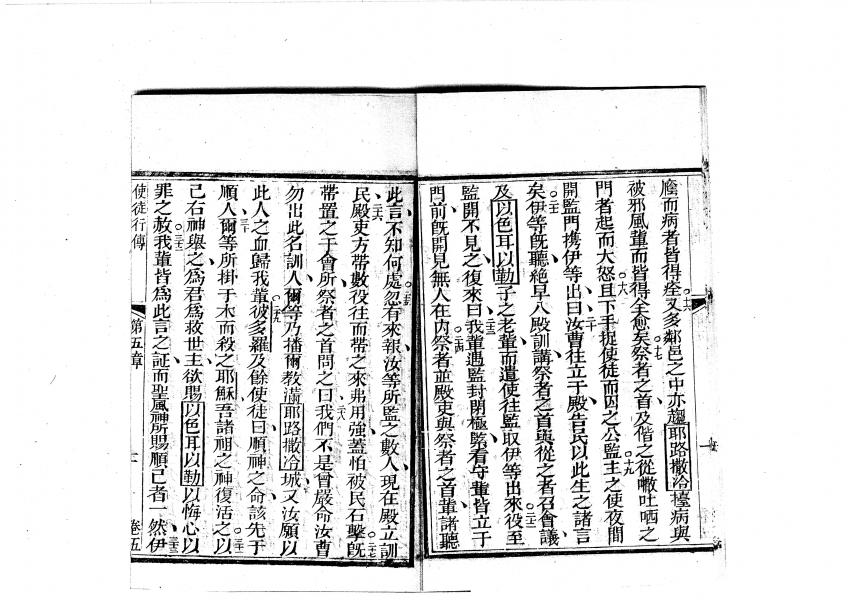 廕而病者皆得痊○十六又多鄰邑之中亦趨耶路撒冷擡病與
被邪風輩而皆得全愈矣○十七祭者之首及偕之從嗽吐哂之
門者起而大怒○十八且下手捉使徒而囚之公監○十九主之使夜間
開監門攜伊等出曰○二十汝曹往立于殿告民以此生之諸言
矣○二一伊等旣聽絕早入殿訓講祭者之首與從之者召會議
及以色耳以勒子之老輩而遣使往監取伊等出來○二二役至
監開不見之復來曰○二三我輩遇監封閉極緊看守輩皆立于
門前旣開見無人在內○二四祭者並殿吏與祭者之首輩諸聽
此言不知何處○二五忽有來報汝等所監之數人現在殿立訓
民○二六殿吏方帶數役往而帶之來弗用強蓋怕被民石擊○二七旣
帶置之于會所祭者之首問之曰○二八我們不是曾嚴命汝曹
勿出此名訓人爾等乃播爾教滿耶路撒冷城又汝願以
此人之血歸我輩○二九彼多羅及餘使徒曰順神之命該先于
順人○三十爾等所掛于木而殺之耶穌吾諸祖之神復活之○三一以
己右神舉之為君為救世主欲賜以色耳以勒以悔心以
罪之赦○三二我輩皆為此言之証而聖風神所賜順己者一然○三三伊
使徒行傳 第五章 卷五